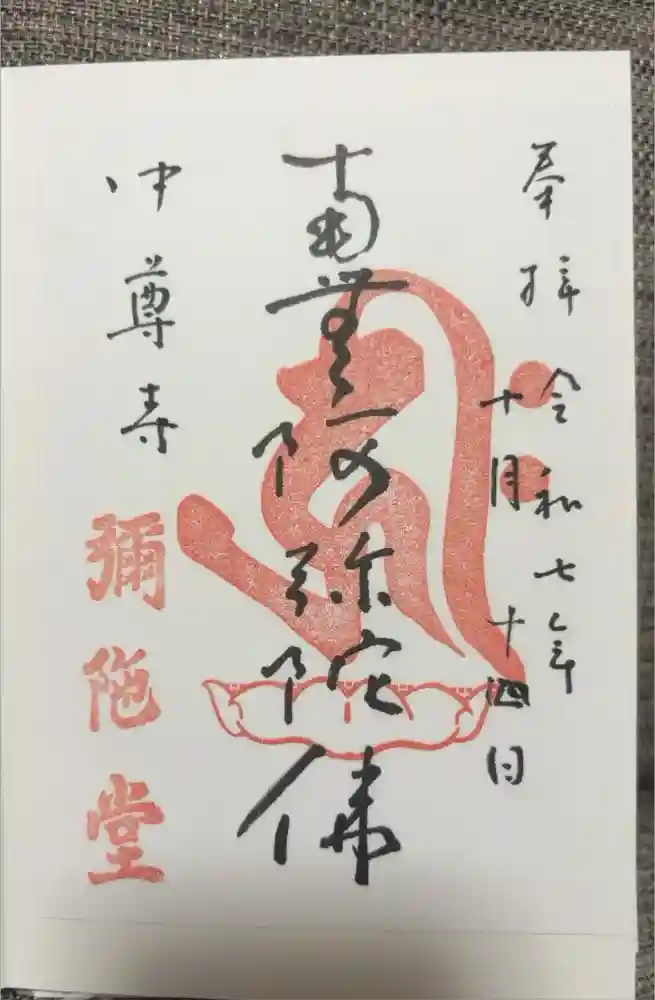 奉拝
令和七年
十月十四日
南無阿弥陀佛
中尊寺
彌陀堂